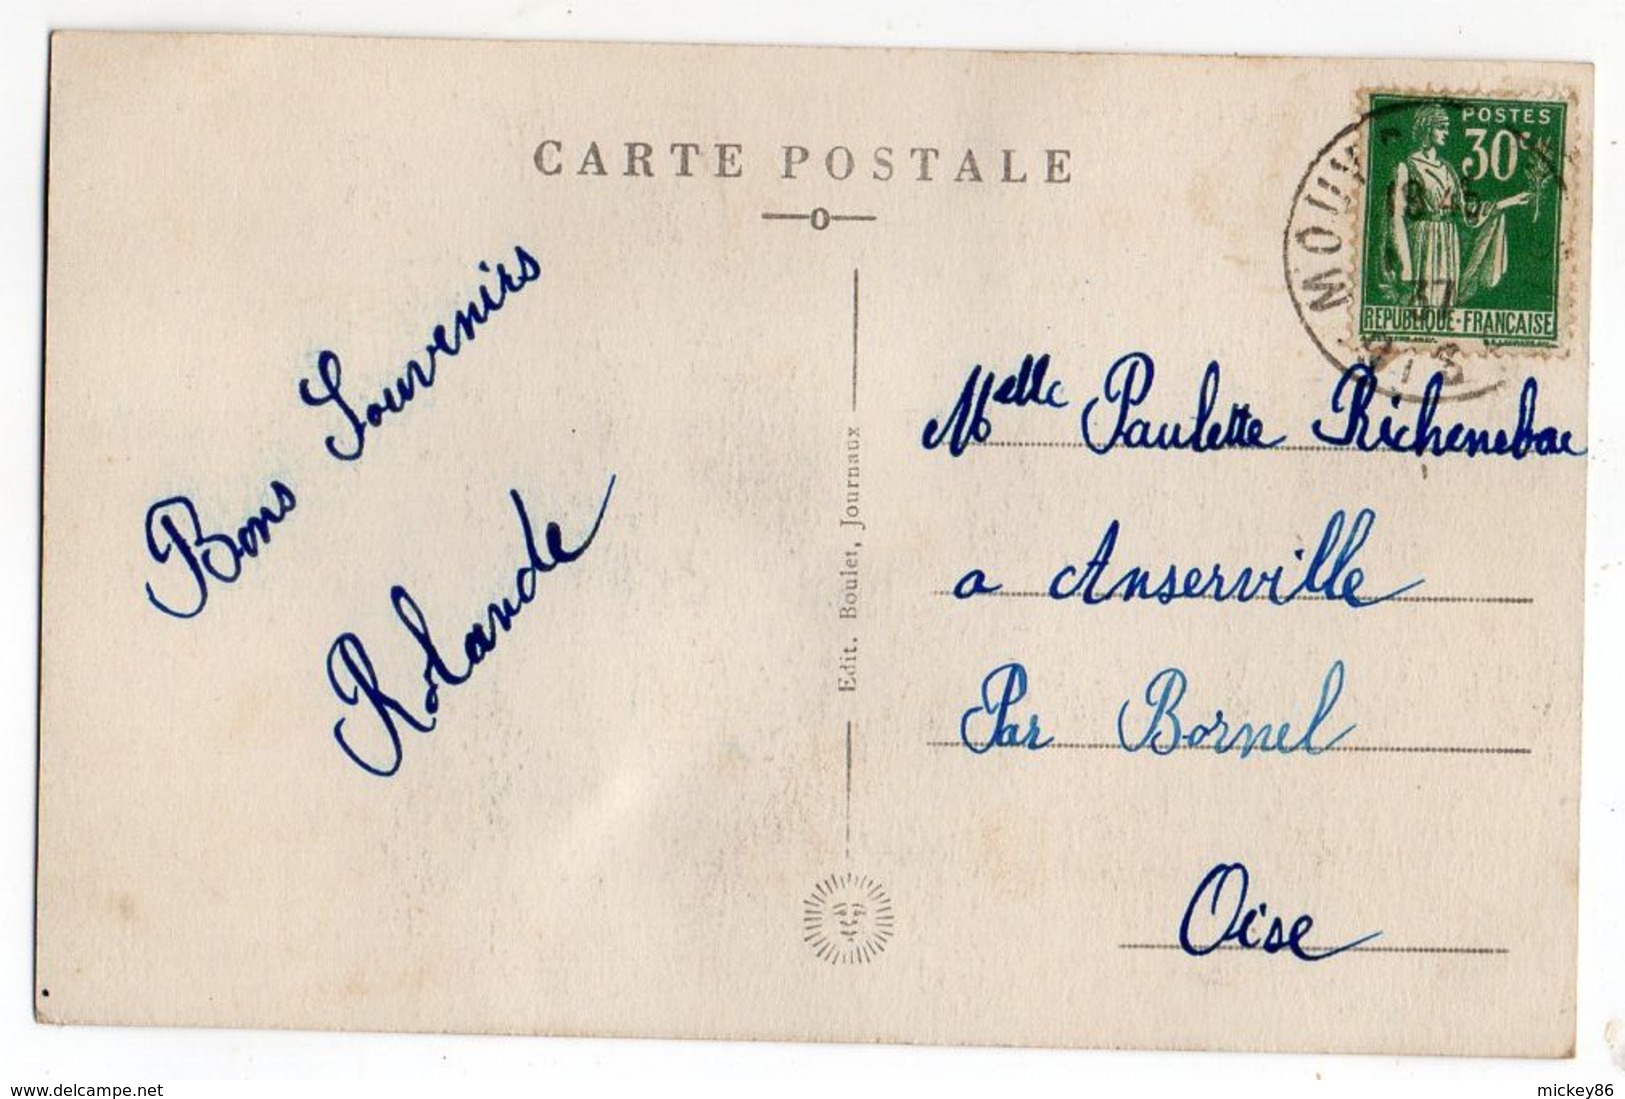 CARTE POSTALE
POSTES
30c
19 45
37
REPUBLIQUE-FRANÇAISE
OISE
Bons Souvenirs
Rolande
Edit. Boulet, Journaux
Melle Paulette Richenebac
a Anserville
Par Bornel
Oise
www.delcampe.net
mickey86